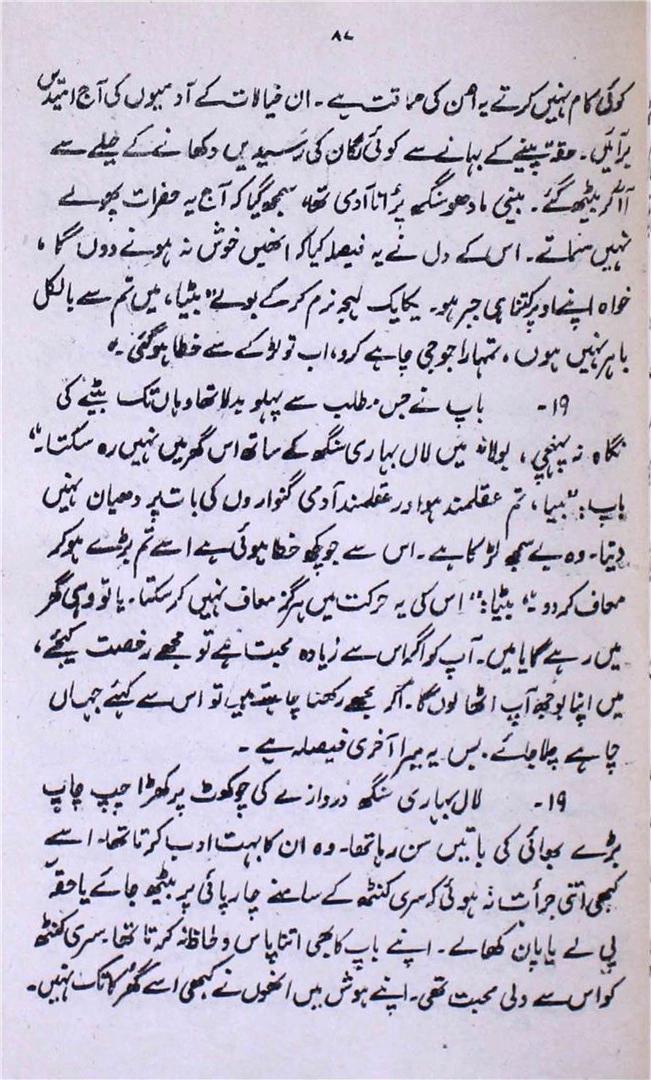 ۸۷
کوئی کام نہیں کرتے یہ اُس کی حماقت ہے۔ ان خیالات کے آدمیوں کی آج امّیدیں
برآئیں۔ حقہ پینے کے بہانے سے کوئی لگان کی رسیدیں دکھانے کے حیلے سے
آ آکر بیٹھ گئے۔ بینی مادھو سنگھ پرُانا آدمی تھا، سمجھ گیا کہ آج یہ حضرات پھولے
نہیں سماتے۔ اس کے دل نے یہ فیصلہ کیا کہ انھیں خوش نہ ہونے دوں گا،
خواہ اپنے اوپر کتنا ہی جبر ہو۔ یکایک لہجہ نرم کر کے بولے" بیٹا، میں تم سے بالکل
باہر نہیں ہوں، تمہارا جو جی چاہے کرو، اب تو لڑکے سے خطا ہو گئی۔"
۱۹۔ باپ نے جس مطلب سے پہلو بدلا تھا وہاں تک بیٹے کی
نگاہ نہ پہنچی، بولا" میں لال بہاری سنگھ کے ساتھ اس گھر میں نہیں رہ سکتا۔"
باپ:"بیٹا، تم عقلمند ہو اور عقلمند آدمی گنواروں کی بات پر دھیان نہیں
دیتا۔ وہ بے سمجھ لڑکا ہے۔ اس سے جو کچھ خطا ہوئی ہے اسے تم بڑے ہو کر
معاف کر دو۔" بیٹا:" اس کی یہ حرکت میں ہرگز معاف نہیں کر سکتا۔ یا تو وہی گھر
میں رہے گا یا میں۔ آپ کو اگر اس سے زیادہ محبت ہے تو مجھے رخصت کیجئے،
میں اپنا بوجھ آپ اٹھا لوں گا۔ اگر مجھے رکھنا چاہتے ہیں تو اس سے کہئے جہاں
چاہے چلا جائے۔ بس یہ میرا آخری فیصلہ ہے۔
۱۹۔ لال بہاری سنگھ دروازے کی چوکھٹ پر کھڑا چپ چاپ
بڑے بھائی کی باتیں سن رہا تھا۔ وہ ان کا بہت ادب کرتا تھا۔ اسے
کبھی اتنی جرأت نہ ہوئی کہ سری کنٹھ کے سامنے چارپائی پر بیٹھ جائے یا حقہ
پی لے یا پان کھالے۔ اپنے باپ کا بھی اتنا پاس و لحاظ نہ کرتا تھا۔ سری کنٹھ
کو اس سے دلی محبت تھی۔ اپنے ہوش میں انھوں نے کبھی اسے گھُرکا تک نہیں۔